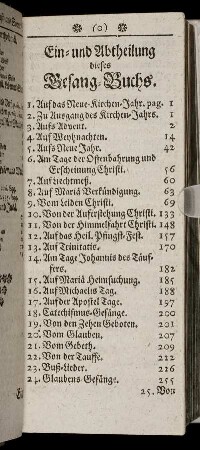 (0)
Ein- und Abtheilung
dieses
Gesang-Buchs.
1. Auf das Neue-Kirchen-Jahr. pag. 1
2. Zu Ausgang des Kirchen-Jahrs. 1
3. Aufs Advent. 2
4. Auf Weyhnachten. 14
5. Aufs Neue Jahr. 42
6. Am Tage der Offenbahrung und
Erscheinung Christi. 56
7. Auf Liechtmeß. 60
8. Auf Mariä Verkündigung. 63
9. Vom Leiden Christi. 69
10. Von der Auferstehung Christi. 133
11. Von der Himmelfahrt Christi. 148
12. Auf das Heil. Pfingst-Fest. 157
13. Auf Trinitatis. 170
14. Am Tage Johannis des Täuf-
fers. 182
15. Auf Mariä Heimsuchung. 185
16. Auf Michaelis Tag. 188
17. Auf der Apostel Tage. 197
18. Catechismus-Gesänge. 200
19. Von den Zehen Geboten. 201
20. Vom Glauben. 207
21. Vom Gebeth. 209
22. Von der Tauffe. 212
23. Buß-Lieder. 216
24. Glaubens-Gesänge. 255
25. Von